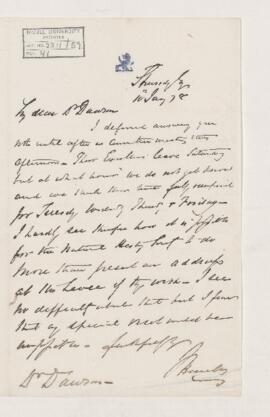 McGILL UNIVERSITY
ARCHIVES
ACC. NO. 2211/59
REF. 41
Thursday
My dear Dr Dawson
I deferred answering you
note until after a Committee meeting this
afternoon. Their Excellencies leave Saturday
but at what hour we do not yet know
and we have their time fully occupied
for Tuesday Wednesday Thursday & Friday
I hardly see therefore how it is possible
for the Natural History Society to do
more than present an address
at the Levee if they wish. I see
no difficulty about that but I fear
that any special visit would be
impossible.
Dr Dawson